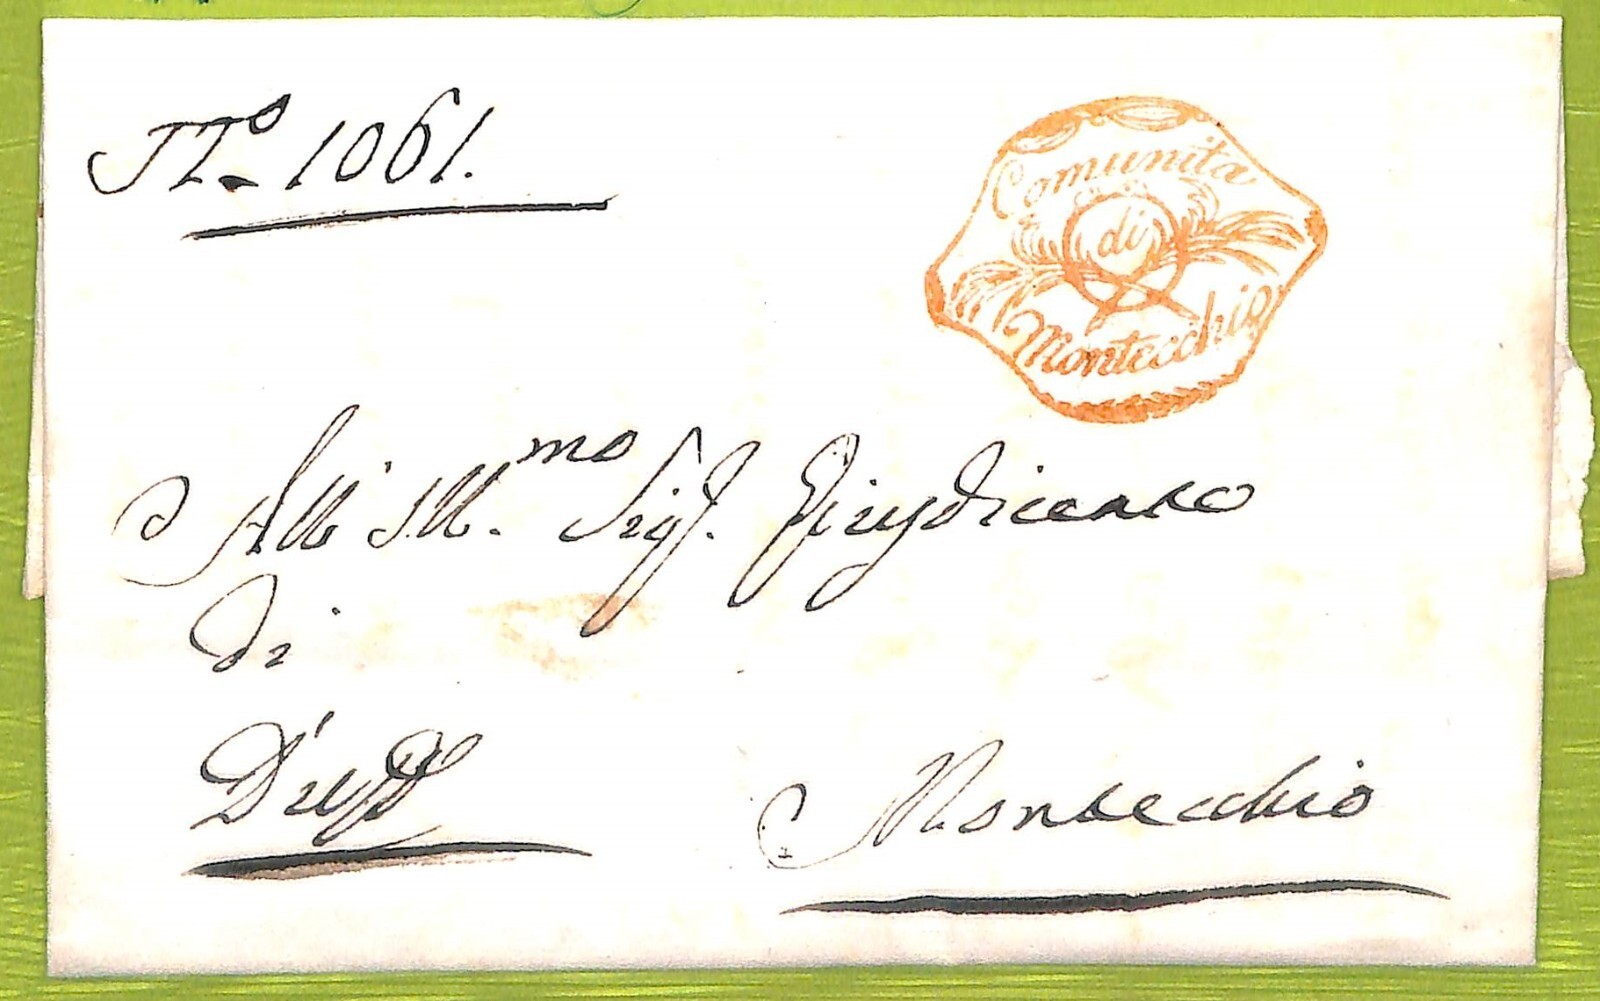 N.º 1061.
Comunita
di
Montecchio
All' Ill.mo Sig.r Giusdicente
di
D'uff.º Montecchio